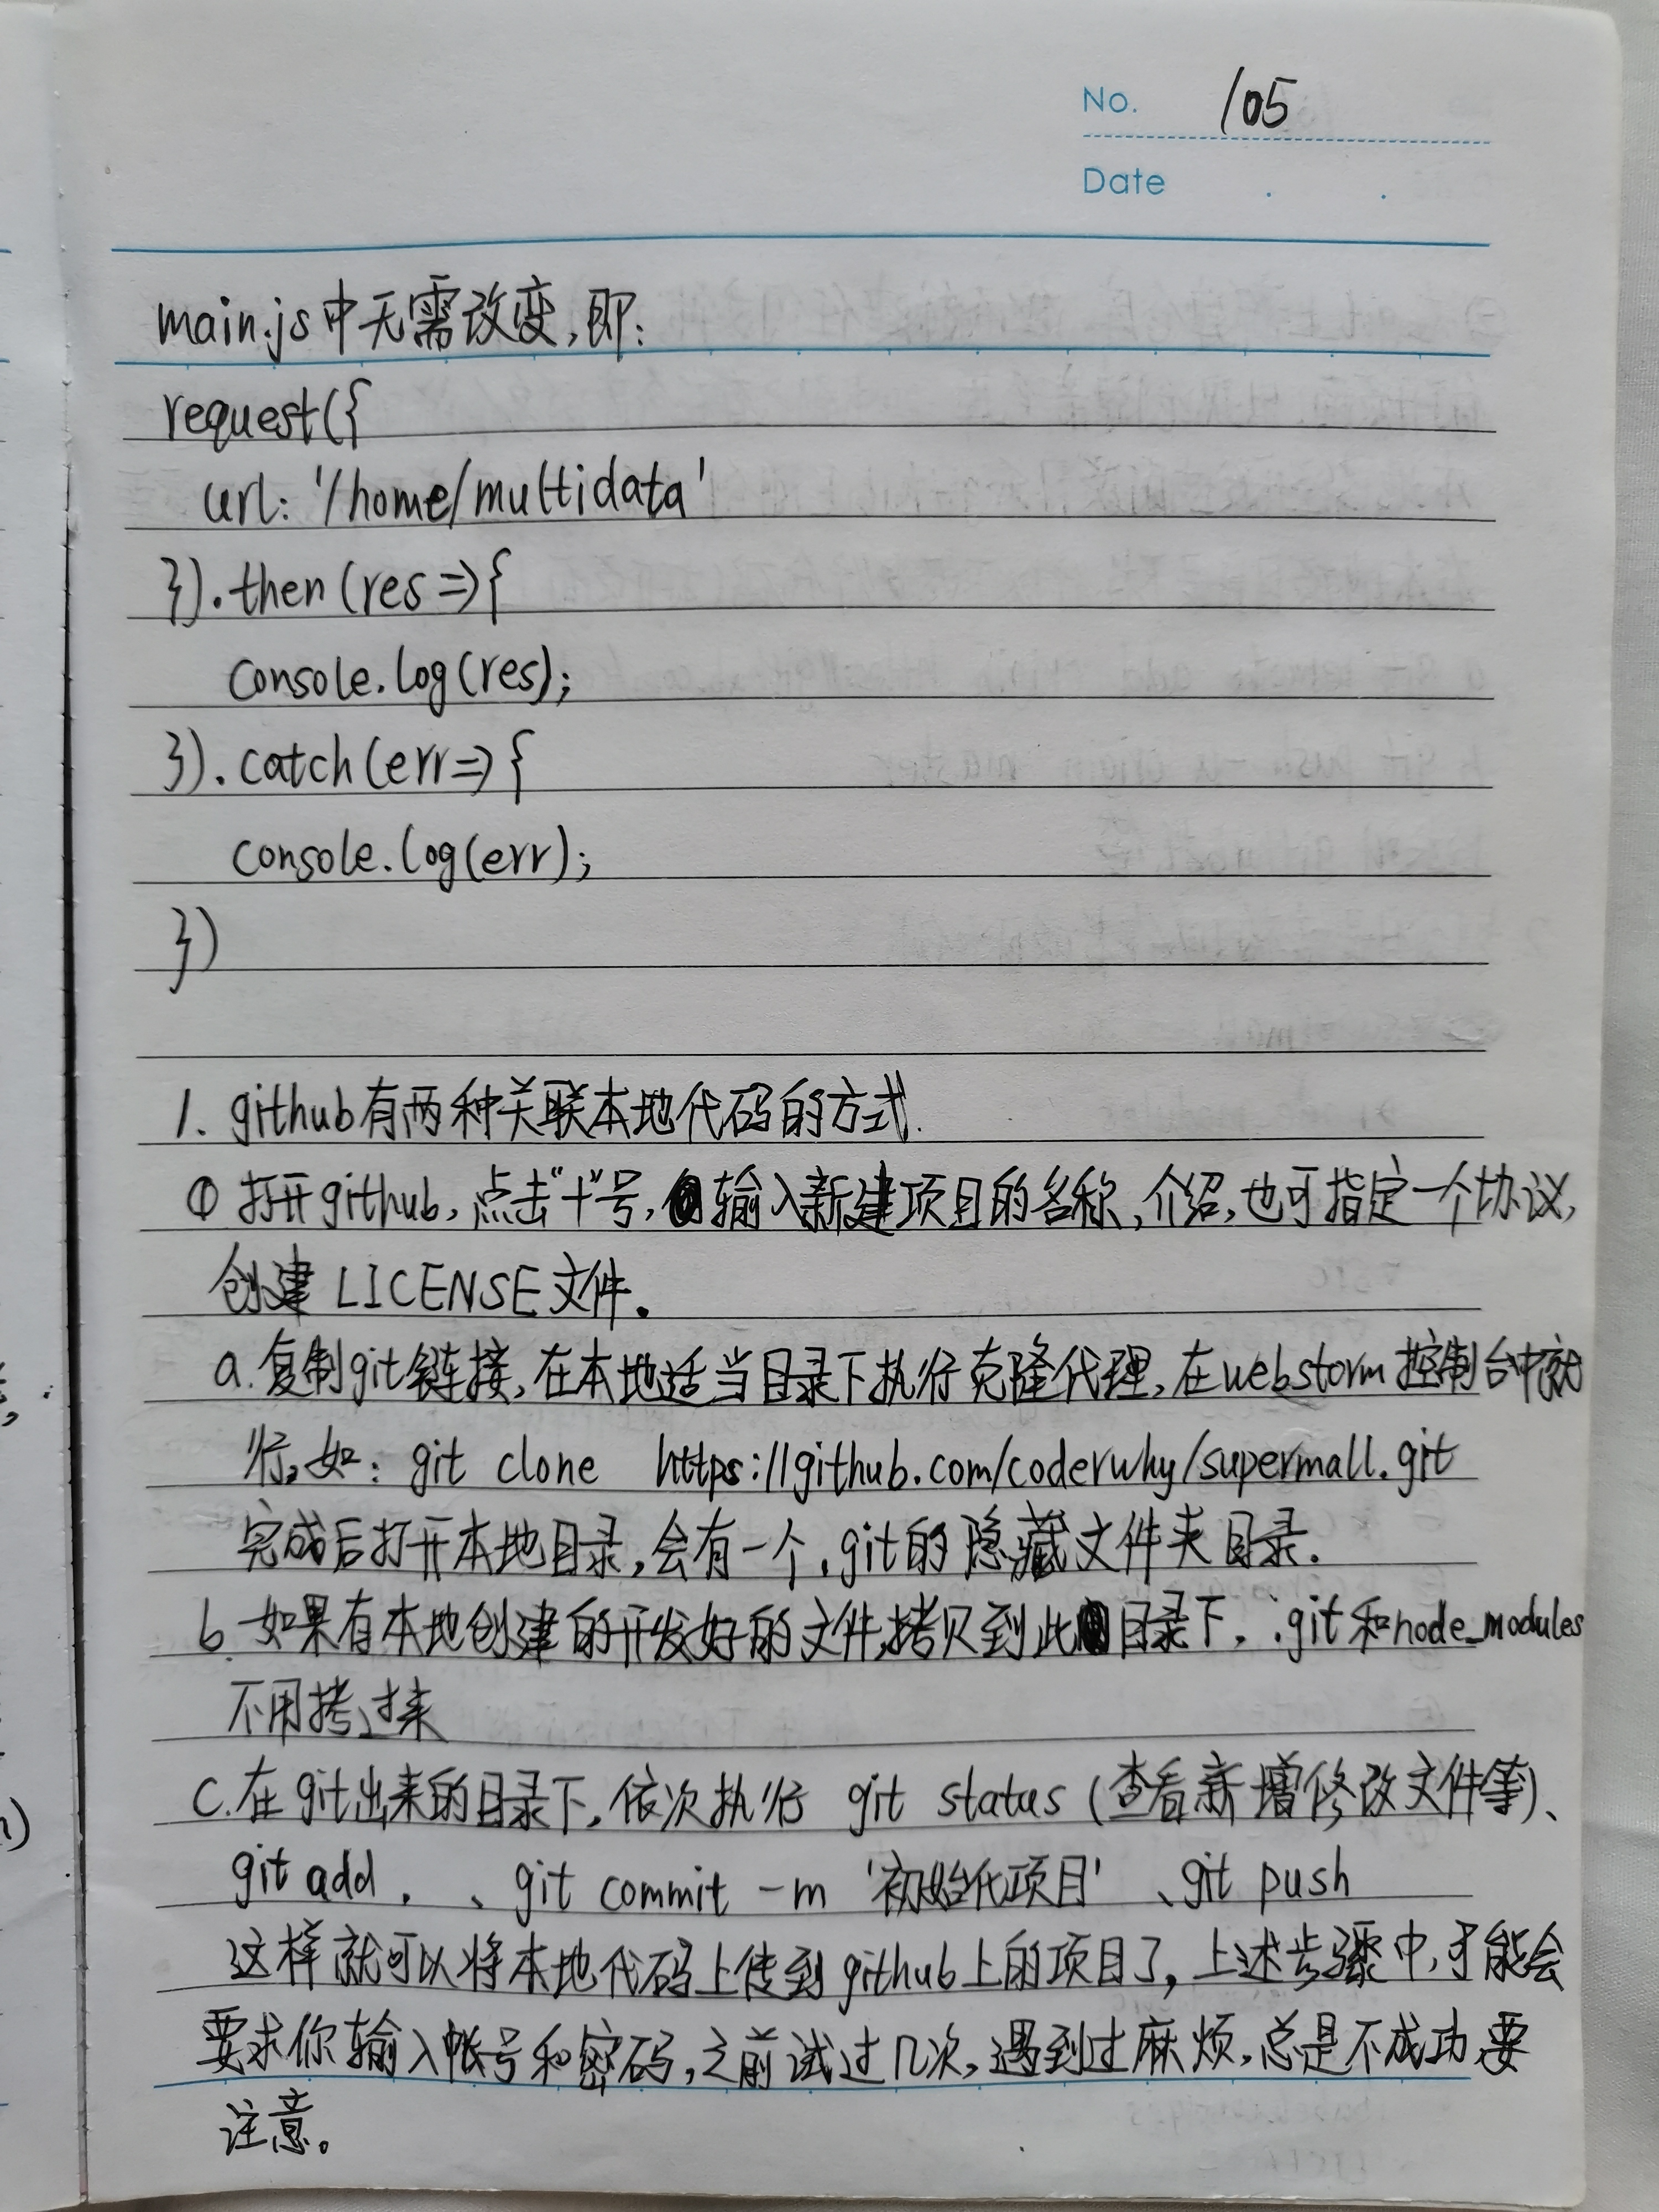 No. 105
Date . .
main.js中无需改变,即:
request({
url: '/home/multidata'
}).then(res=>{
console.log(res);
}).catch(err=>{
console.log(err);
})
1. github有两种关联本地代码的方式.
① 打开github,点击"+"号,输入新建项目的名称,介绍,也可指定一个协议,
创建 LICENSE文件。
a.复制git链接,在本地适当目录下执行克隆代理,在webstorm控制台中就
行,如: git clone https://github.com/coderwhy/supermall.git
完成后打开本地目录,会有一个.git的隐藏文件夹目录.
b.如果有本地创建的开发好的文件,拷贝到此目录下, .git和node_modules
不用拷过来
c.在git出来的目录下,依次执行 git status (查看新增修改文件等)、
git add . 、git commit -m '初始化项目' 、git push
这样就可以将本地代码上传到github上的项目了,上述步骤中,可能会
要求你输入帐号和密码,之前试过几次,遇到过麻烦,总是不成功,要
注意。